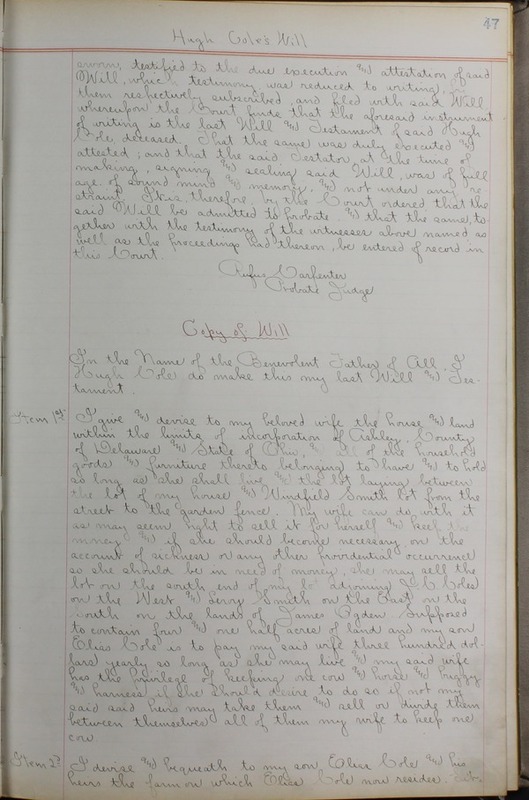 47
Hugh Cole's Will
sworn, testified to the due execution and attestation of said
Will, which testimony was reduced to writing, by
them respectively subscribed and filed with said Will
whereupon the Court finds that the aforesaid instrument
of writing is the last Will and Testament of said Hugh
Cole deceased. That the same was duly executed and
attested; and that the said Testator at the time of
making, signing and sealing said Will, was of full
age, of sound mind and memory, and not under any re
straint. It is, therefore, by the Court ordered that the
said Will be admitted to probate. and that the same, to-
gether with the testimony of the witnesses above named as
well as the proceedings had thereon, be entered of record in
this Court.
Rufus Carpenter
Probate Judge
Copy of Will
In the Name of the Benevolent Father of All, I
Hugh Cole do make this my last Will and Tes-
tament.
Item 1st I give and devise to my beloved wife the house and land
within the limits of incorporation of Ashley, County
of Delaware and State of Ohio, and all of the household
goods and furniture thereto belonging to have and to hold
so long as she shall live, and the lot laying between
the lot of my house and Windfield Smith lot from the
street to the garden fence. My wife can do with it
as may seem right to sell it for herself and keep the
money and if she should become necessary on the
account of sickness or any other providential occurrence
so she should be in need of money, she may sell the
lot on the south end of my lot adjoining Coles
on the West and Leroy Smith on the East on the
south on the lands of James Ogden Supposed
to contain four and one half acres of land and my son
Elias Cole is to pay my said wife three hundred dol-
lars yearly so long as she may live and my said wife
has the privilege of keeping one cow and horse and buggy
and harness if she should desire to do so if not my
said said heirs may take them and sell or divide them
between themselves all of them my wife to keep one
cow
Item 2d I devise and bequeath to my son Elias Cole and his
heirs the farm on which Elias Cole now resides.